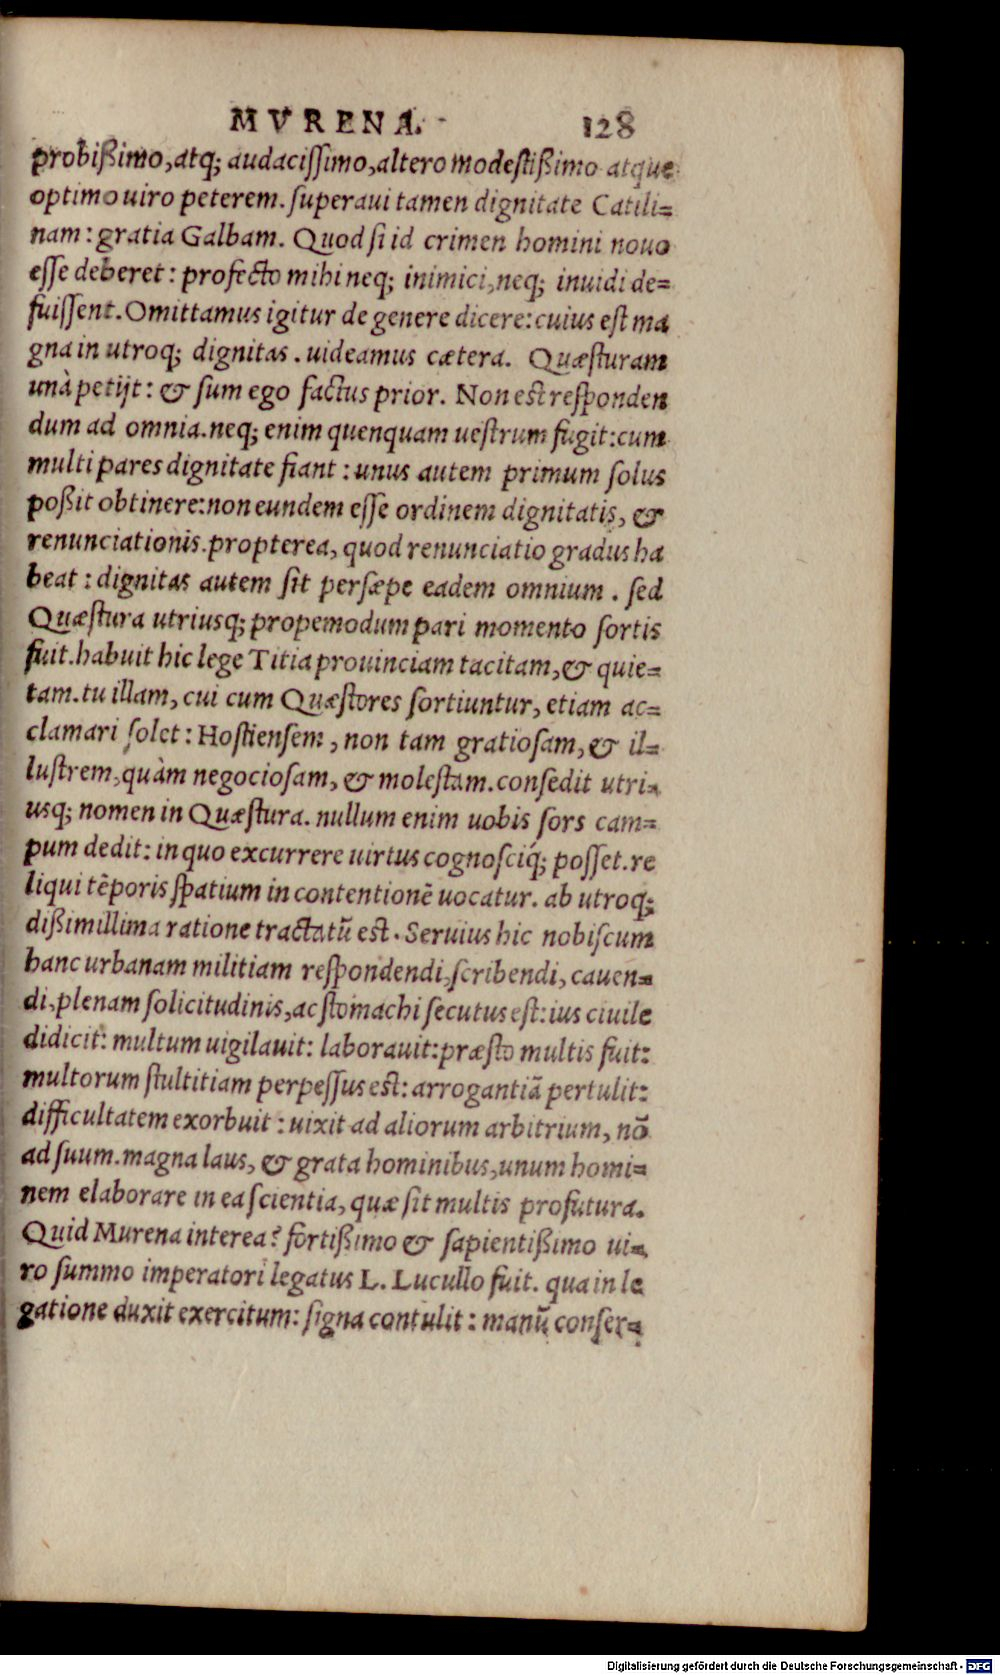 MVRENA. 128
probißimo, atq; audacißimo, altero modestißimo atque
optimo uiro peterem. superaui tamen dignitate Catili=
nam: gratia Galbam. Quod si id crimen homini nouo
esse deberet: profecto mihi neq; inimici, neq; inuidi de=
fuissent. Omittamus igitur de genere dicere: cuius est ma
gna in utroq; dignitas. uideamus cætera. Quæsturam
unà petijt: & sum ego factus prior. Non est responden
dum ad omnia. neq; enim quenquam uestrum fugit: cum
multi pares dignitate fiant: unus autem primum solus
poßit obtinere: non eundem esse ordinem dignitatis, &
renunciationis. propterea, quod renunciatio gradus ha
beat: dignitas autem sit persæpe eadem omnium. sed
Quæstura utriusq; propemodum pari momento sortis
fuit. habuit hic lege Titia prouinciam tacitam, & quie=
tam. tu illam, cui cum Quæstores sortiuntur, etiam ac=
clamari solet: Hostiensem, non tam gratiosam, & il=
lustrem, quàm negociosam, & molestam. consedit utri=
usq; nomen in Quæstura. nullum enim uobis sors cam=
pum dedit: in quo excurrere uirtus cognosciq́; posset. re
liqui tēporis spatium in contentionē uocatur. ab utroq;
dißimillima ratione tractatū est. Seruius hic nobiscum
hanc urbanam militiam respondendi, scribendi, cauen=
di, plenam solicitudinis, ac stomachi secutus est: ius ciuile
didicit: multum uigilauit: laborauit: præsto multis fuit:
multorum stultitiam perpessus est: arrogantiā pertulit:
difficultatem exorbuit: uixit ad aliorum arbitrium, nō
ad suum. magna laus, & grata hominibus, unum homi=
nem elaborare in ea scientia, quæ sit multis profutura.
Quid Murena interea? fortißimo & sapientißimo ui=
ro summo imperatori legatus L. Lucullo fuit. qua in le
gatione duxit exercitum: signa contulit: manū conser=
Digitalisierung gefördert durch die Deutsche Forschungsgemeinschaft - DFG